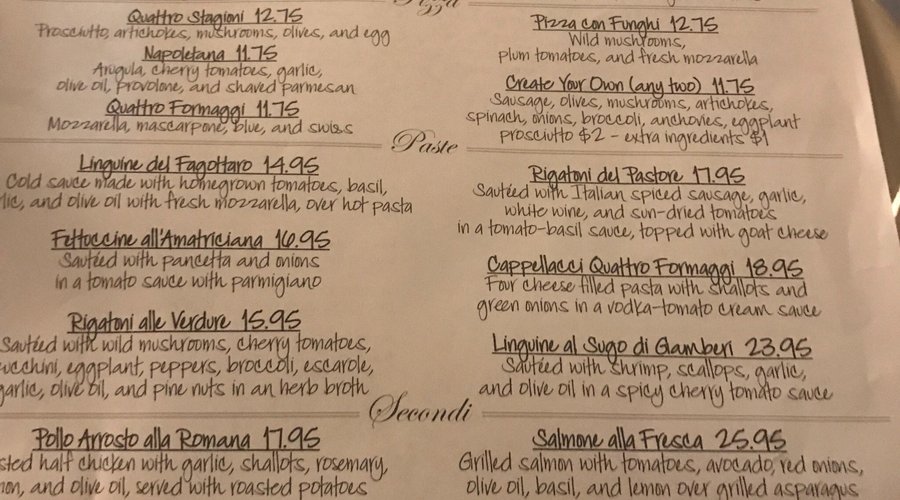 Pizza
Quattro Stagioni 12.75
Prosciutto, artichokes, mushrooms, olives, and egg
Napoletana 11.75
Arugula, cherry tomatoes, garlic,
olive oil, provolone, and shaved parmesan
Quattro Formaggi 11.75
Mozzarella, mascarpone, blue, and swiss
Pizza con Funghi 12.75
Wild mushrooms,
plum tomatoes, and fresh mozzarella
Create Your Own (any two) 11.75
Sausage, olives, mushrooms, artichokes,
spinach, onions, broccoli, anchovies, eggplant
prosciutto $2 - extra ingredients $1
Paste
Linguine del Fagottaro 14.95
Cold sauce made with homegrown tomatoes, basil,
lic, and olive oil with fresh mozzarella, over hot pasta
Fettoccine all'Amatriciana 16.95
Sautéed with pancetta and onions
in a tomato sauce with parmigiano
Rigatoni alle Verdure 15.95
Sautéed with wild mushrooms, cherry tomatoes,
ucchini, eggplant, peppers, broccoli, escarole,
garlic, olive oil, and pine nuts in an herb broth
Rigatoni del Pastore 17.95
Sautéed with Italian spiced sausage, garlic,
white wine, and sun-dried tomatoes
in a tomato-basil sauce, topped with goat cheese
Cappellacci Quattro Formaggi 18.95
Four cheese filled pasta with shallots and
green onions in a vodka-tomato cream sauce
Linguine al Sugo di Gamberi 23.95
Sautéed with shrimp, scallops, garlic,
and olive oil in a spicy cherry tomato sauce
Secondi
Pollo Arrosto alla Romana 17.95
sted half chicken with garlic, shallots, rosemary,
on, and olive oil, served with roasted potatoes
Salmone alla Fresca 25.95
Grilled salmon with tomatoes, avocado, red onions,
olive oil, basil, and lemon over grilled asparagus